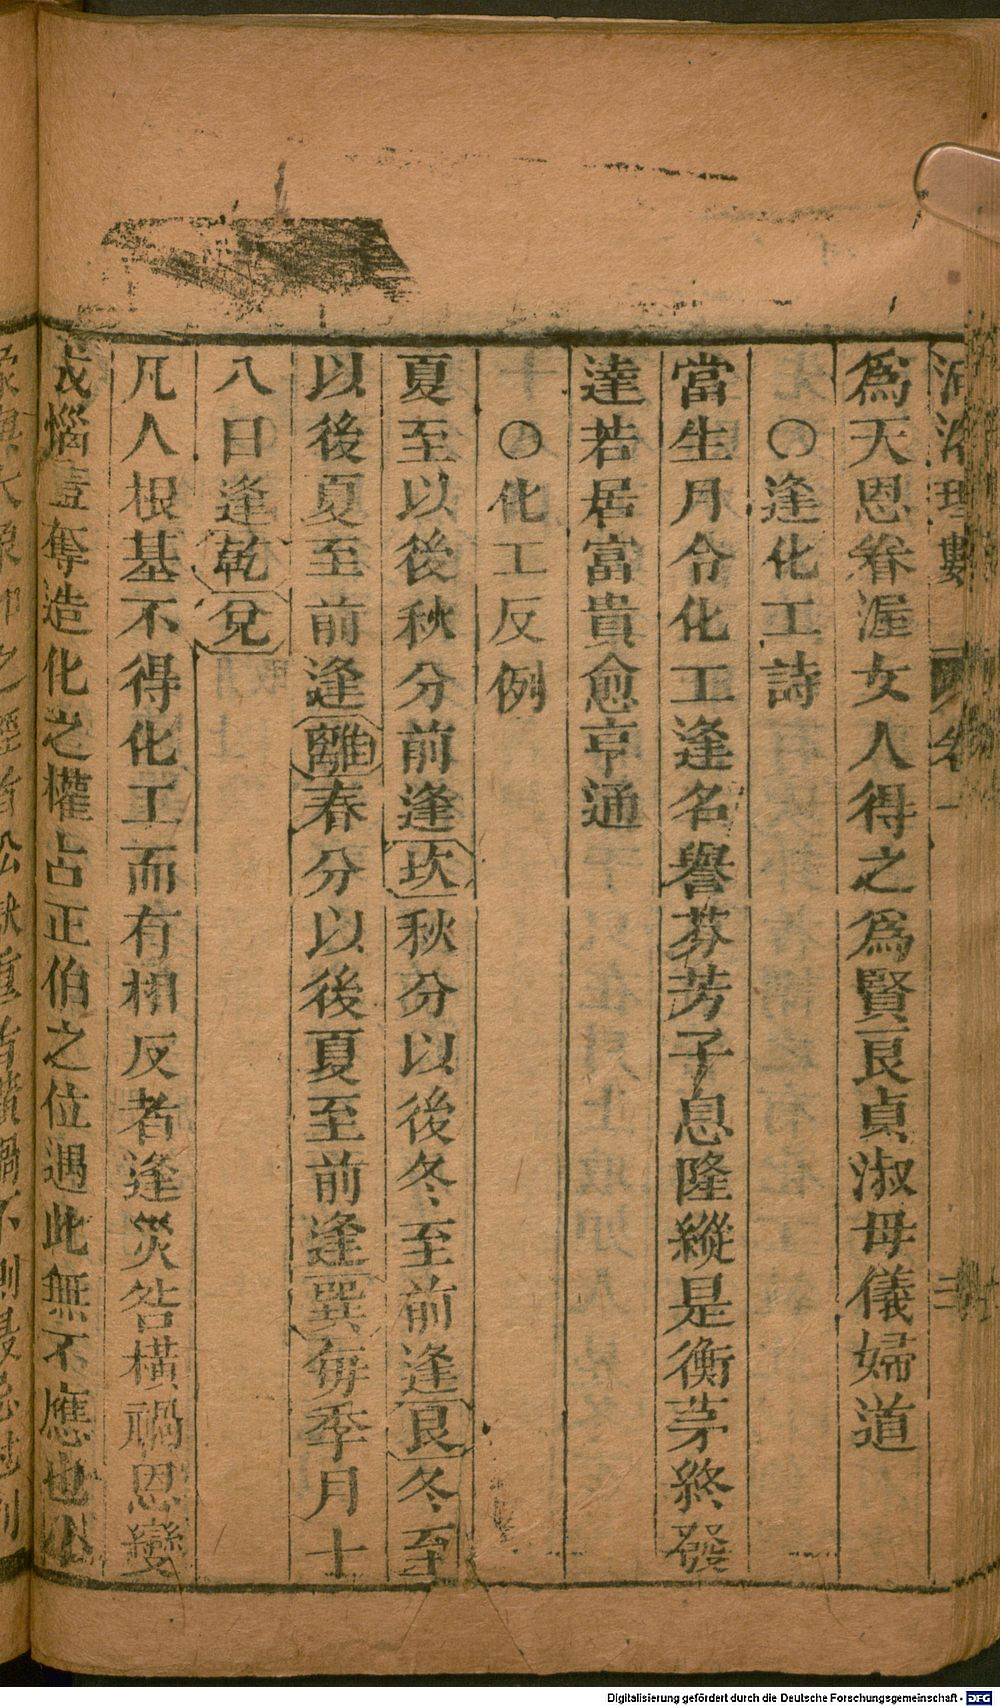 河洛理數
為天恩眷渥女人得之為賢艮貞淑母儀婦道
○逢化工詩
當生月令化工逢名譽芬芳子息隆縱是衡茅終發
達若居富貴愈亨通
○化工反例
夏至以後秋分前逢坎秋分以後冬至前逢艮冬至
以後夏至前逢離春分以後夏至前逢巽每季月十
八日逢乾兌
凡人根基不得化工而有相反者逢災咎橫禍恩變
成惱壹奪造化之權占正伯之位遇此無不應也
Digitalisierung gefördert durch die Deutsche Forschungsgemeinschaft - DFG